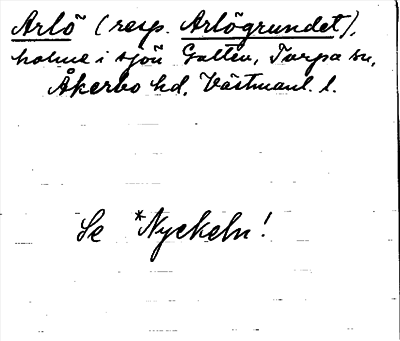 Arlö (resp. Arlögrundet),
holme i sjön Galten, Torpa sn,
Åkerbo hd, Västmanl. l.
Se *Nyckeln!